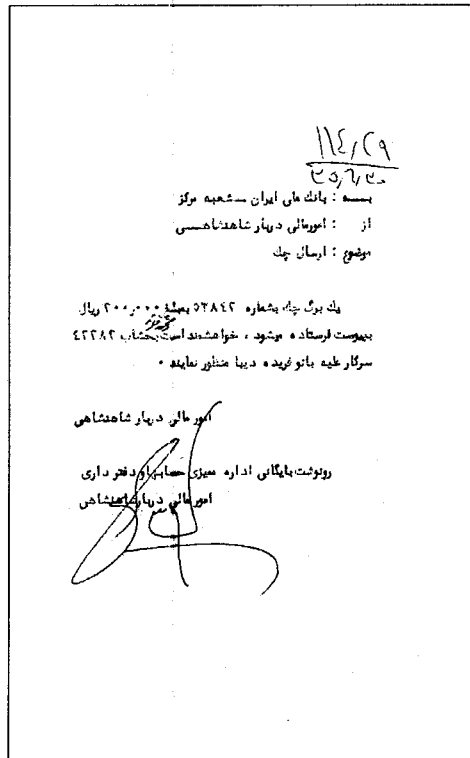 ۱۱٤٫۲۹
۳۵٫٦٫۳۰
بسه : بانك ملی ایران ــ شعبه مرکز
از : امورمالی دربار شاهنشاهــی
موضوع : ارسال چك
یك برگ چك بشماره ٥٣٨٤٢ بمبلغ ۲۰۰٫۰۰۰ ریال
بپیوست فرستاده میشود ، خواهشمند است بحساب ٤٢٢٨٢
سرکار علیه بانو فریده دیبا منظور نمایند ۰
امور مالی دربار شاهنشاهی
رونوشت بایگانی اداره ممیزی حسابها و دفترداری
امور مالی دربار شاهنشاهی